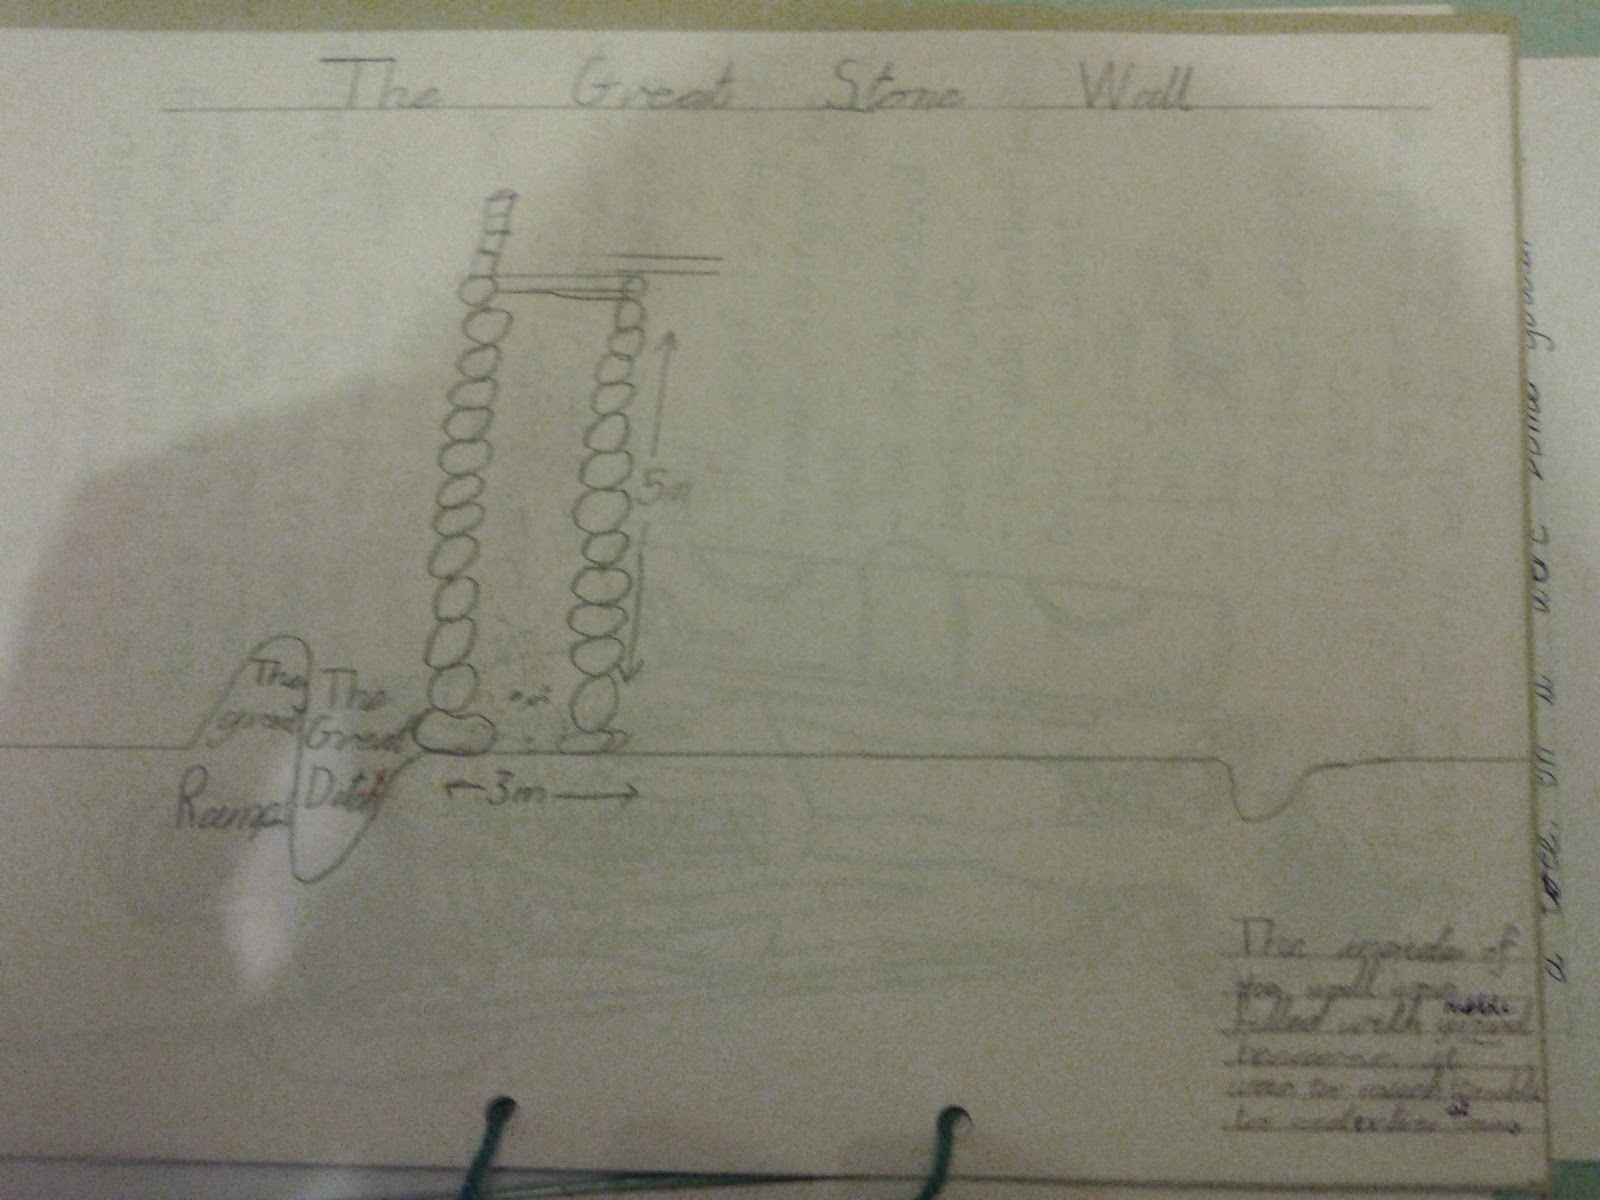 The Great Stone Wall
5m
The
great
Ramp
The
Great
Ditch
← 3m →
The inside of
the wall was
filled with
because it
was too much trouble
to
a well. on it were some